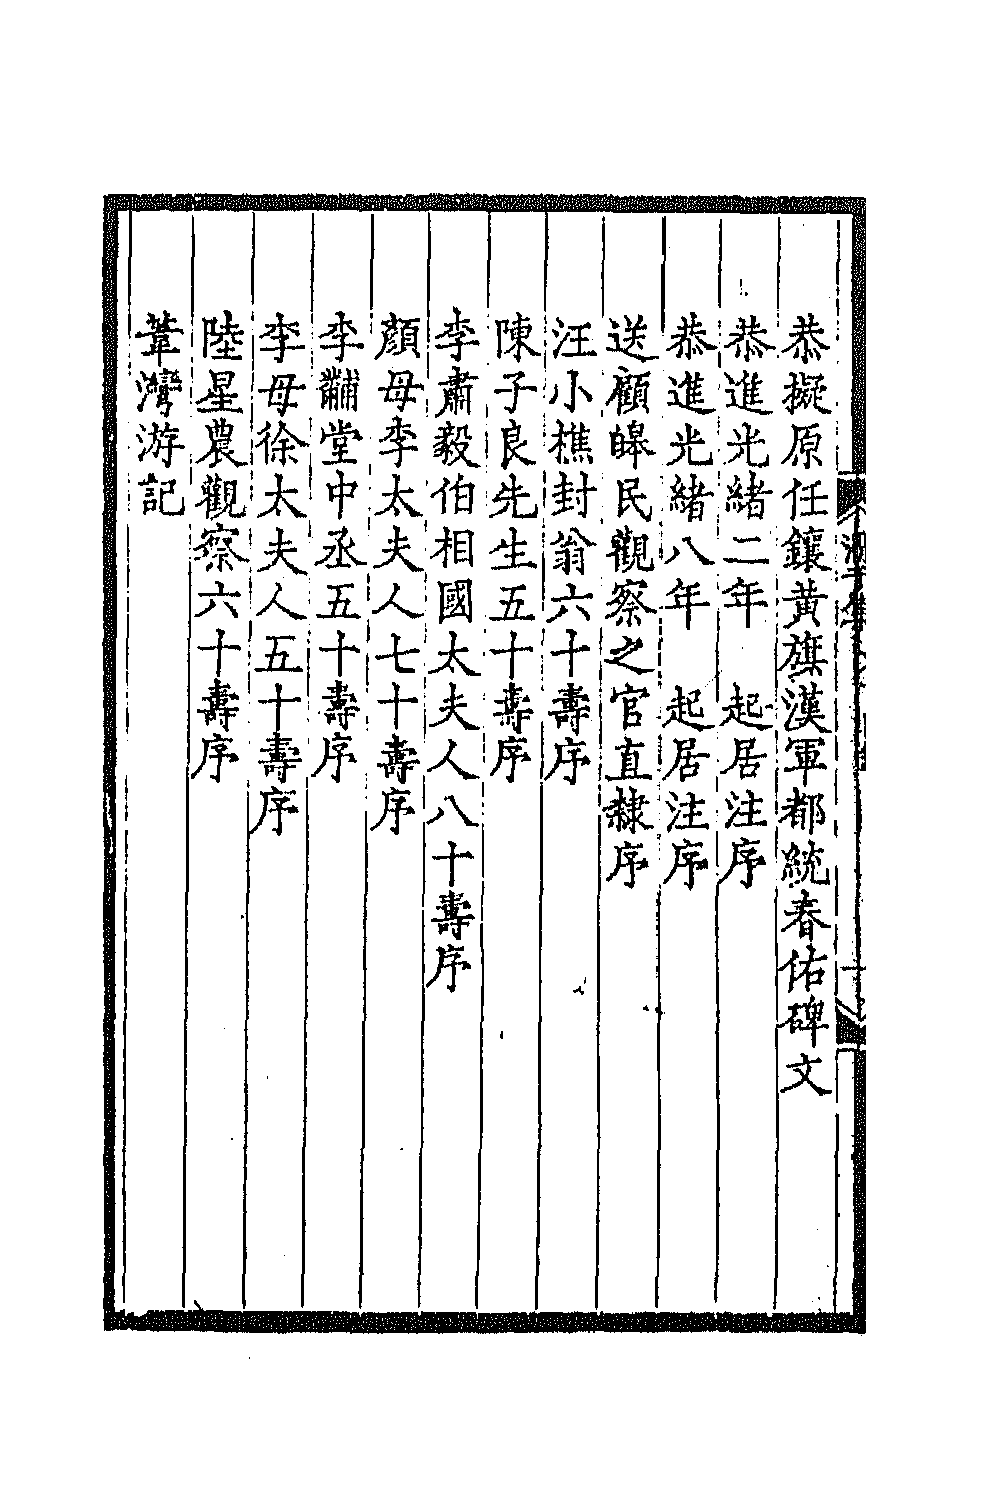 恭擬原任鑲黃旗漢軍都統春佑碑文
恭進光緒二年　起居注序
恭進光緒八年　起居注序
送顧皞民觀察之官直隸序
汪小樵封翁六十壽序
陳子良先生五十壽序
李肅毅伯相國太夫人八十壽序
顏母李太夫人七十壽序
李黼堂中丞五十壽序
李母徐太夫人五十壽序
陸星農觀察六十壽序
葦灣游記